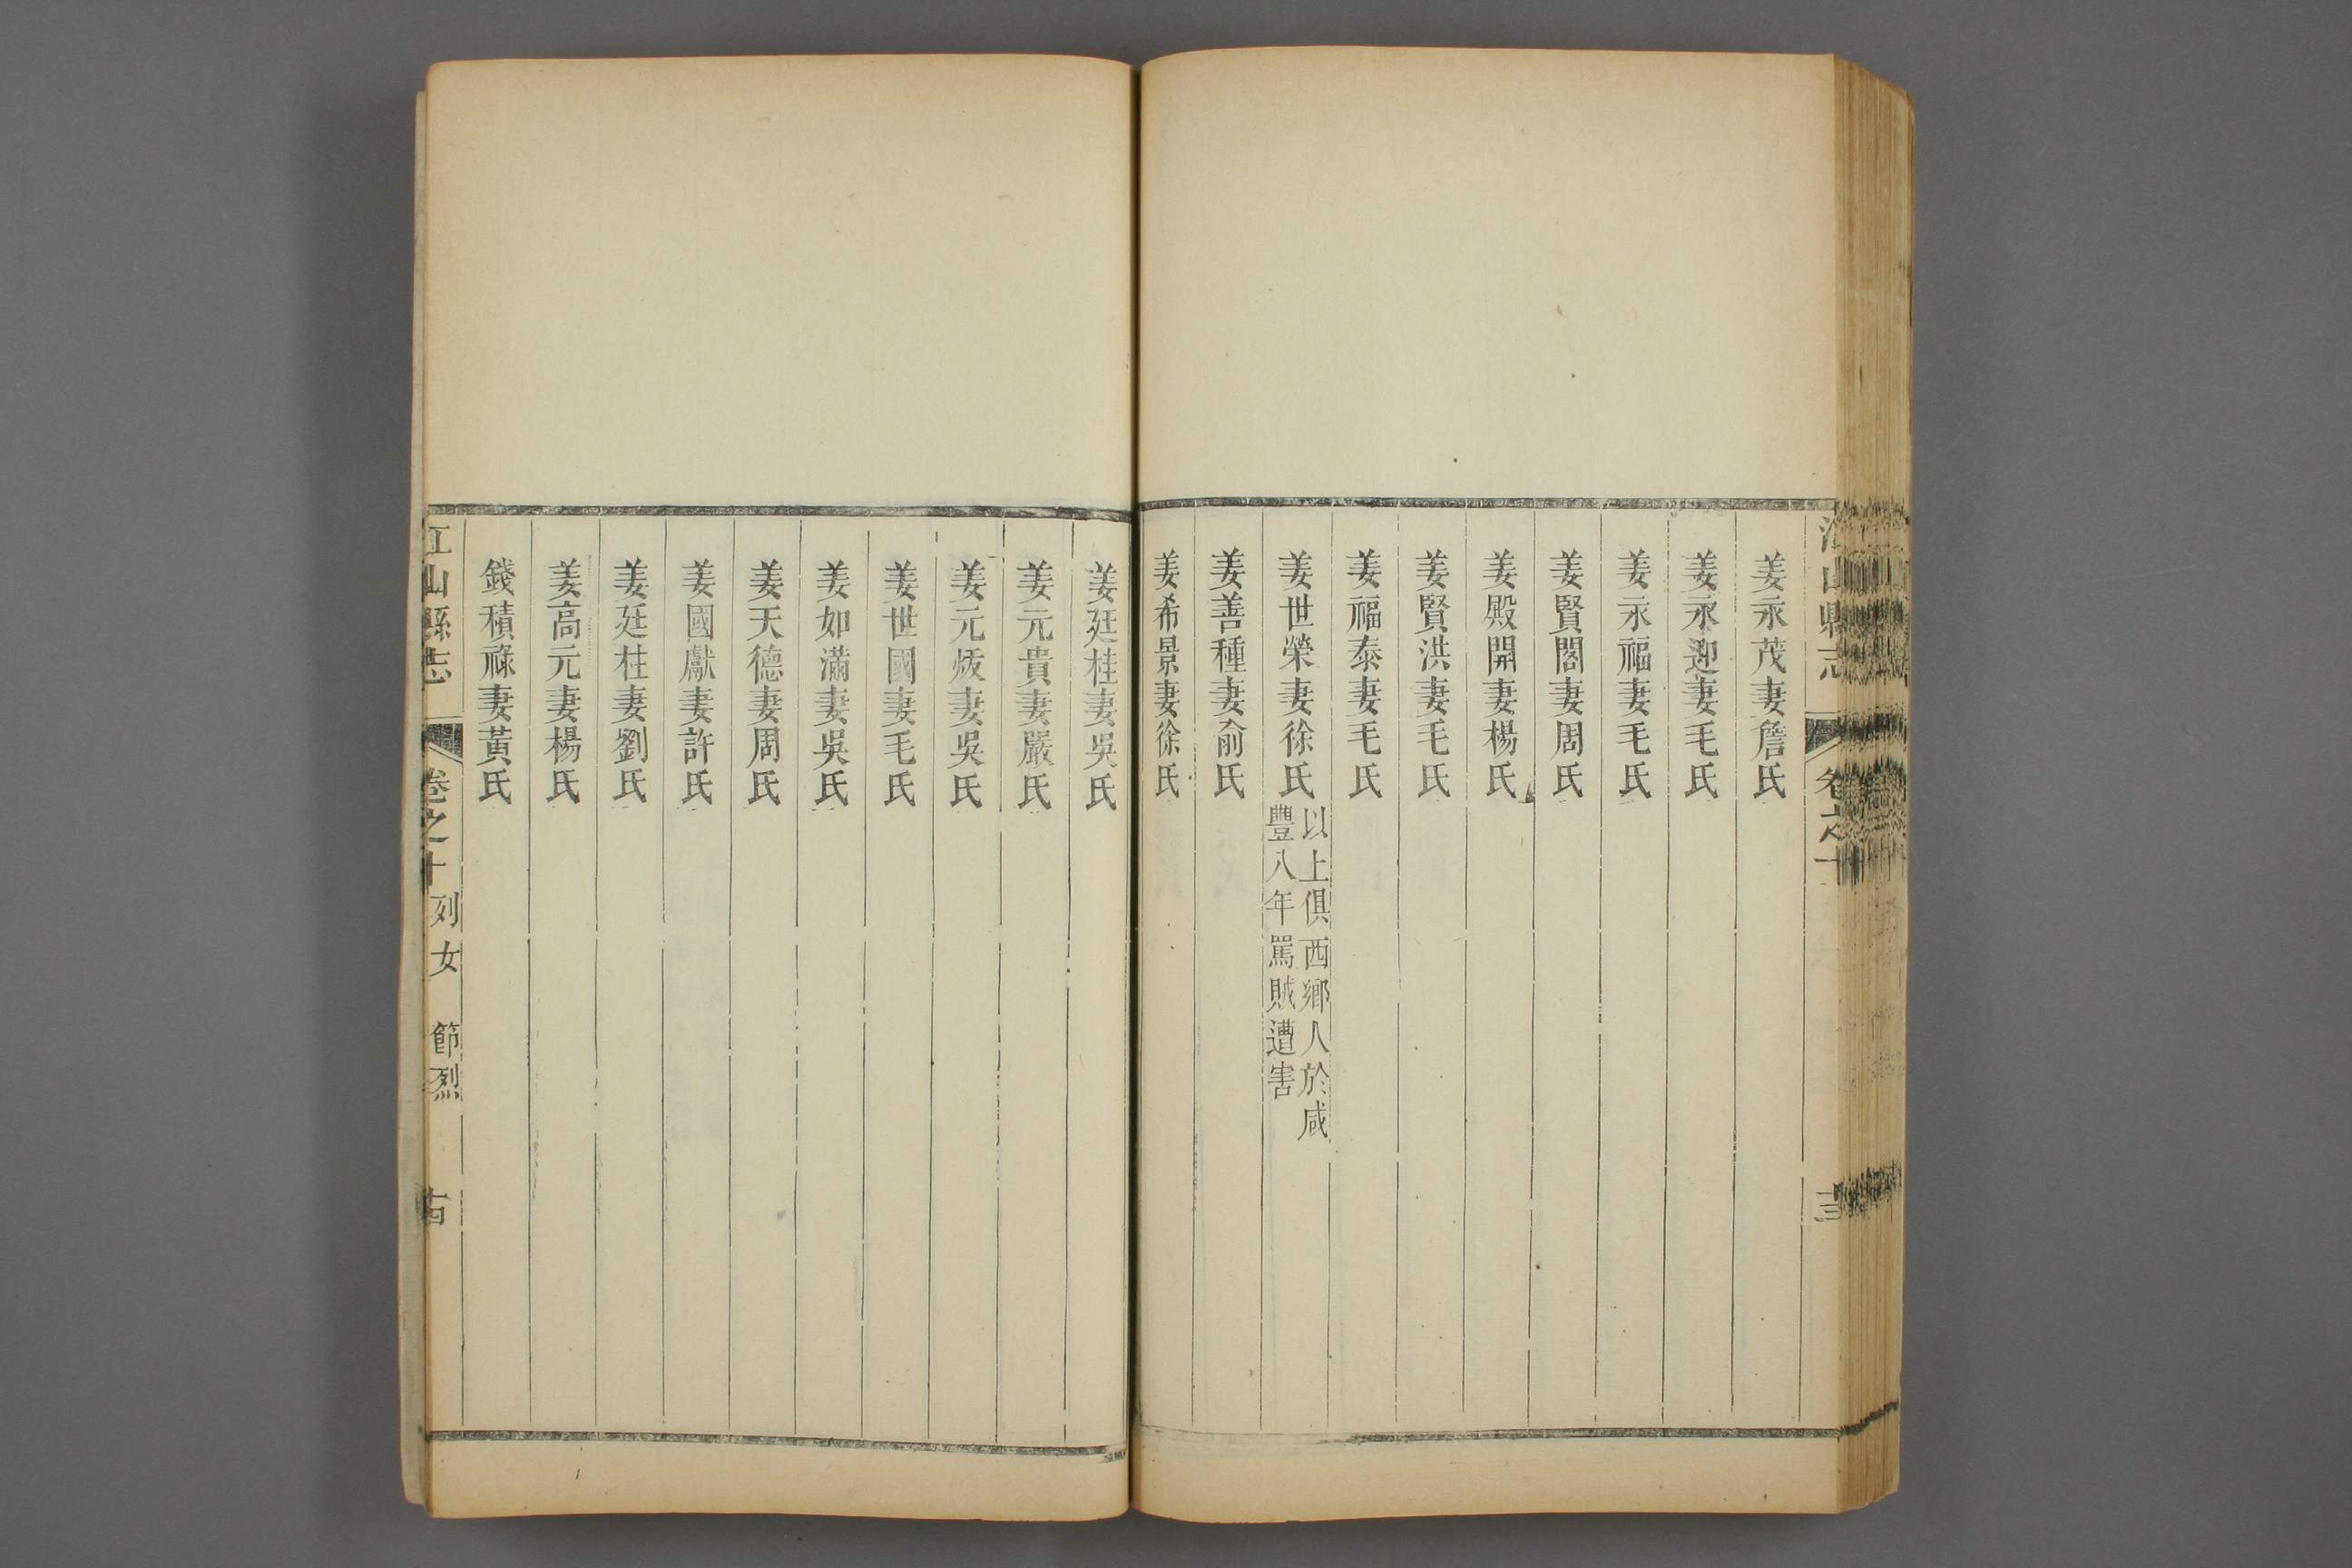 江山縣志 卷之十 十三
姜永茂妻詹氏
姜永迎妻毛氏
姜永福妻毛氏
姜賢閣妻周氏
姜殿開妻楊氏
姜賢洪妻毛氏
姜福泰妻毛氏
姜世榮妻徐氏
以上俱西鄉人於咸
豐八年罵賊遭害
姜善種妻俞氏
姜希景妻徐氏
姜廷桂妻吳氏
姜元貴妻嚴氏
姜元炦妻吳氏
姜世國妻毛氏
姜如滿妻吳氏
姜天德妻周氏
姜國獻妻許氏
姜廷柱妻劉氏
姜高元妻楊氏
錢積祿妻黃氏
江山縣志 卷之十 列女 節烈 十四